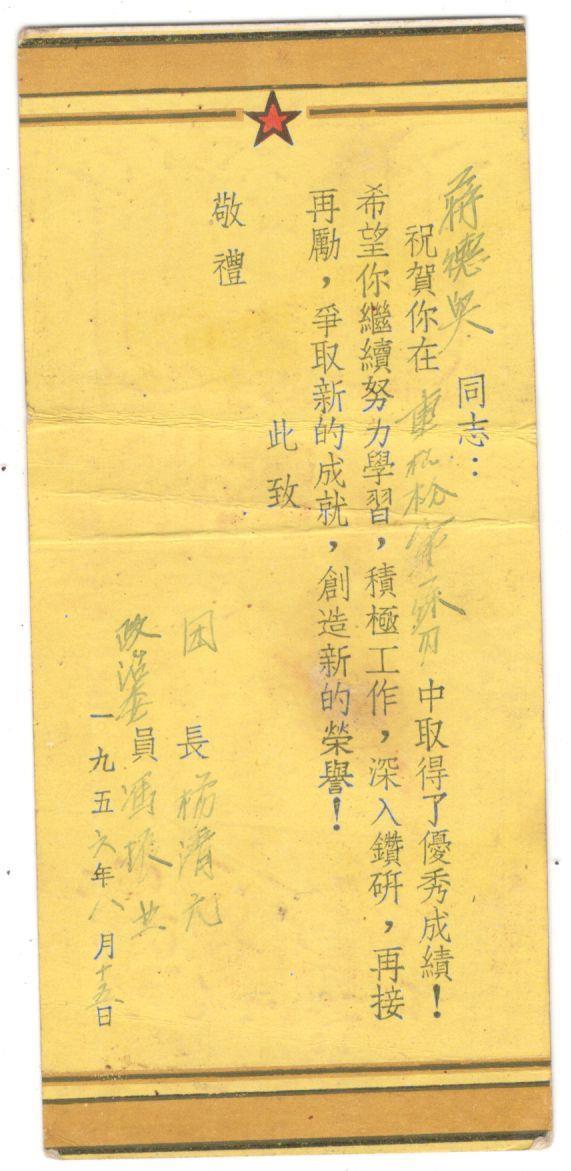 蒋德 同志：
祝賀你在 重机枪实 中取得了優秀成績！
希望你繼續努力學習，積極工作，深入鑽研，再接
再勵，爭取新的成就，創造新的榮譽！
此致
敬禮
团長 楊清元
政治委員 馮振
一九五六年八月十五日